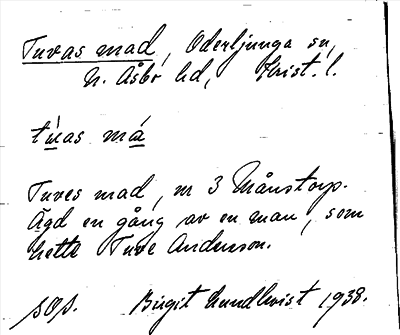 Tuvas mad, Oderljunga sn,
N. Åsbo hd, Krist. l.
Tuves mad, nr 3 Månstorp.
Ägd en gång av en man, som
hette Tuve Andersson.
sop. Birgit Lundkvist 1938.